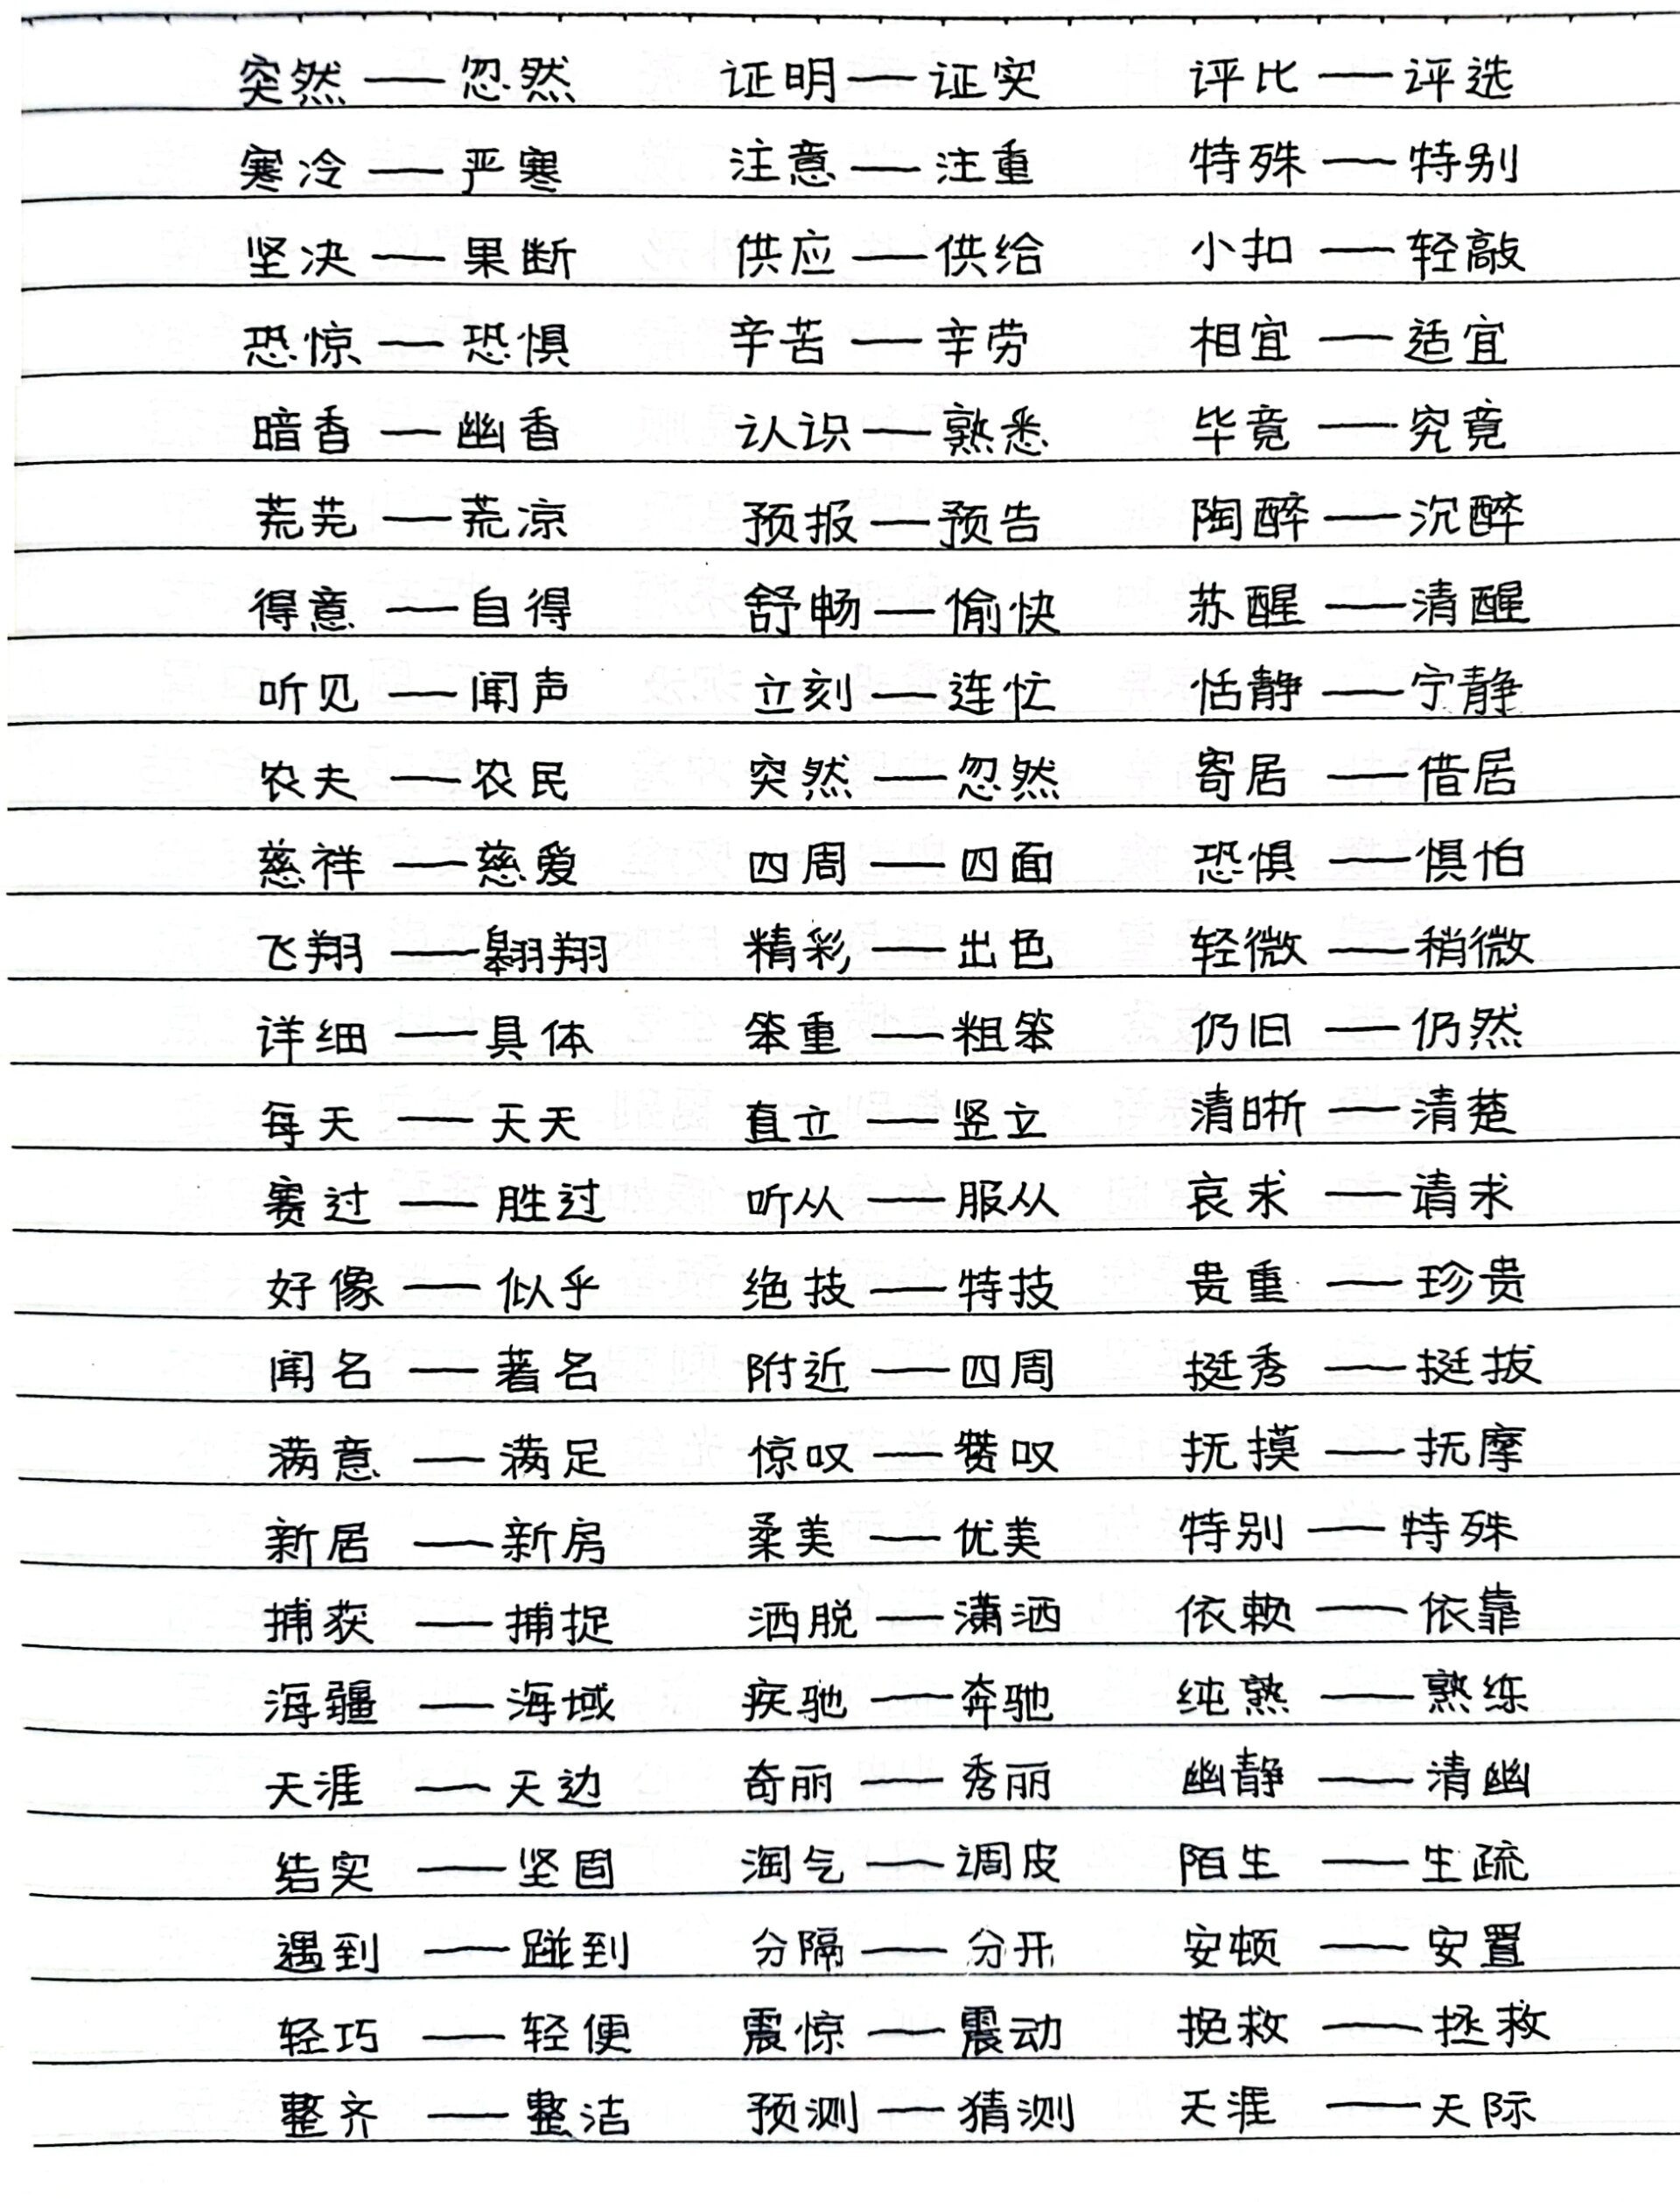 突然——忽然 证明——证实 评比——评选
寒冷——严寒 注意——注重 特殊——特别
坚决——果断 供应——供给 小扣——轻敲
恐惊——恐惧 辛苦——辛劳 相宜——适宜
暗香——幽香 认识——熟悉 毕竟——究竟
荒芜——荒凉 预报——预告 陶醉——沉醉
得意——自得 舒畅——愉快 苏醒——清醒
听见——闻声 立刻——连忙 恬静——宁静
农夫——农民 突然——忽然 寄居——借居
慈祥——慈爱 四周——四面 恐惧——惧怕
飞翔——翱翔 精彩——出色 轻微——稍微
详细——具体 笨重——粗笨 仍旧——仍然
每天——天天 直立——竖立 清晰——清楚
赛过——胜过 听从——服从 哀求——请求
好像——似乎 绝技——特技 贵重——珍贵
闻名——著名 附近——四周 挺秀——挺拔
满意——满足 惊叹——赞叹 抚摸——抚摩
新居——新房 柔美——优美 特别——特殊
捕获——捕捉 洒脱——潇洒 依赖——依靠
海疆——海域 疾驰——奔驰 纯熟——熟练
天涯——天边 奇丽——秀丽 幽静——清幽
结实——坚固 淘气——调皮 陌生——生疏
遇到——碰到 分隔——分开 安顿——安置
轻巧——轻便 震惊——震动 挽救——拯救
整齐——整洁 预测——猜测 天涯——天际